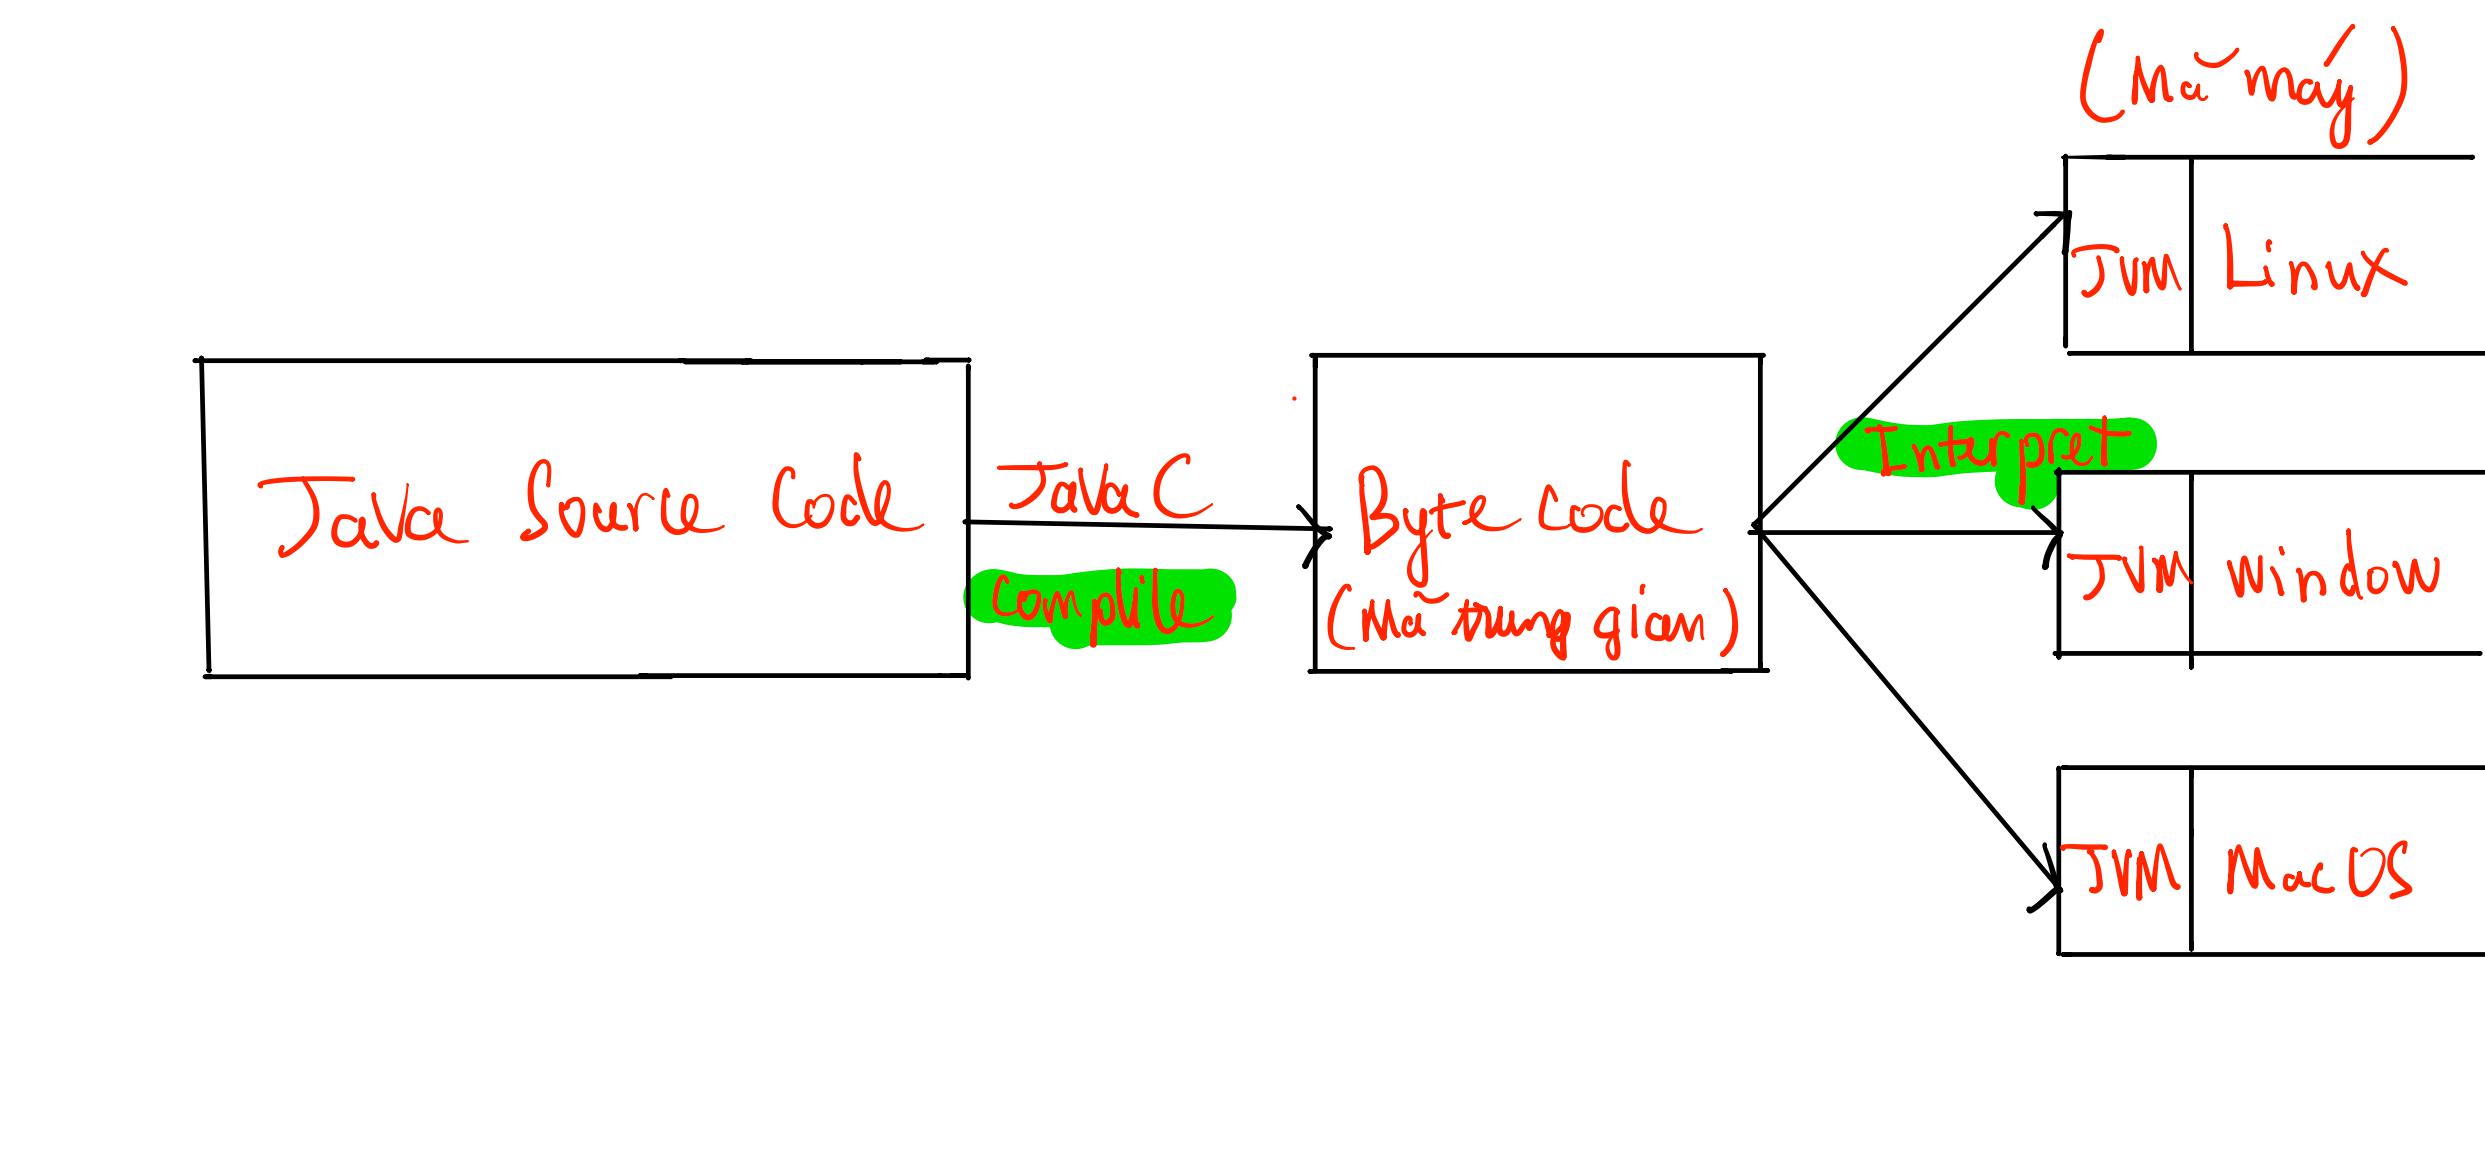 (Mã máy)
JVM Linux
Java Source Code
JavaC
Complile
Byte Code
(Mã trung gian)
Interpret
JVM Window
JVM MacOS